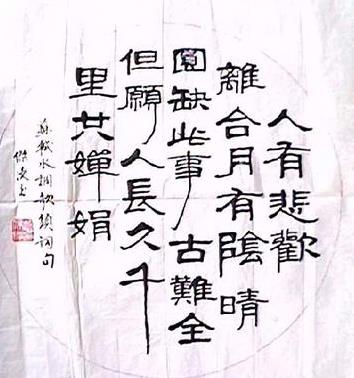 人有悲歡
離合月有陰晴
圓缺此事古難全
但願人長久千
里共嬋娟
蘇軾水調歌頭詞句